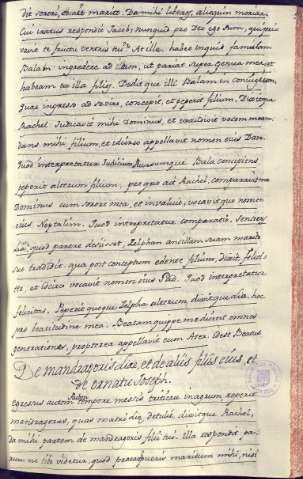 die sorori, et ait marito: Da mihi liberos, alioquin moriar.
Cui iratus respondit Jacob: nunquid pro Deo ego sum, qui pri-
vavit te fructu ventris tui? At illa: habeo inquit famulam
Balam: ingredere ad illam, ut pariat super genua mea, et
habeam ex illa filios. Dedit que illi Balam in conjugium
quae ingresso ad se viro, concepit, et peperit filium. Dixitque
Rachel: Judicavit mihi Dominus, et exaudivit vocem meam,
dans mihi filium, et idcirco appellavit nomen eius Dan.
Quod interpretatur Judicium. Rursumque Bala concipiens
peperit alterum filium, pro quo ait Rachel: comparavit me
Dominus cum sorore mea, et invalui, vocavitque nomen
eius Neptalim. Quod interpretatur comparatio. Sentiens
Lia, quod parere desiisset, Zelpham ancillam suam marito
suo tradidit. quae post conceptum edente filium, dixit: felici-
ter, et idcirco vocavit nomen eius Gad. Quod interpretatur
felicitas. Peperit quoque Zelpha alterum, dixitque Lia: hoc
pro beatitudine mea. Beatam quippe me dicent omnes
generationes, propterea appellavit eum Aser. idest Beatus
De mandragoris Liae, et de aliis filiis eius, et
de ornatu Joseph.
Egressus autem Ruben tempore messis triticeae in agrum, reperit
mandragoras, quas matri Liae detulit, dixitque Rachel,
da mihi partem de mandragoris filii tui. Illa respondit pa-
rum ne tibi videtur, quod praeripueris maritum mihi, nisi